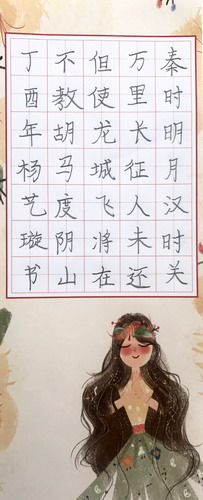 秦时明月汉时关
万里长征人未还
但使龙城飞将在
不教胡马度阴山
丁酉年杨艺璇书